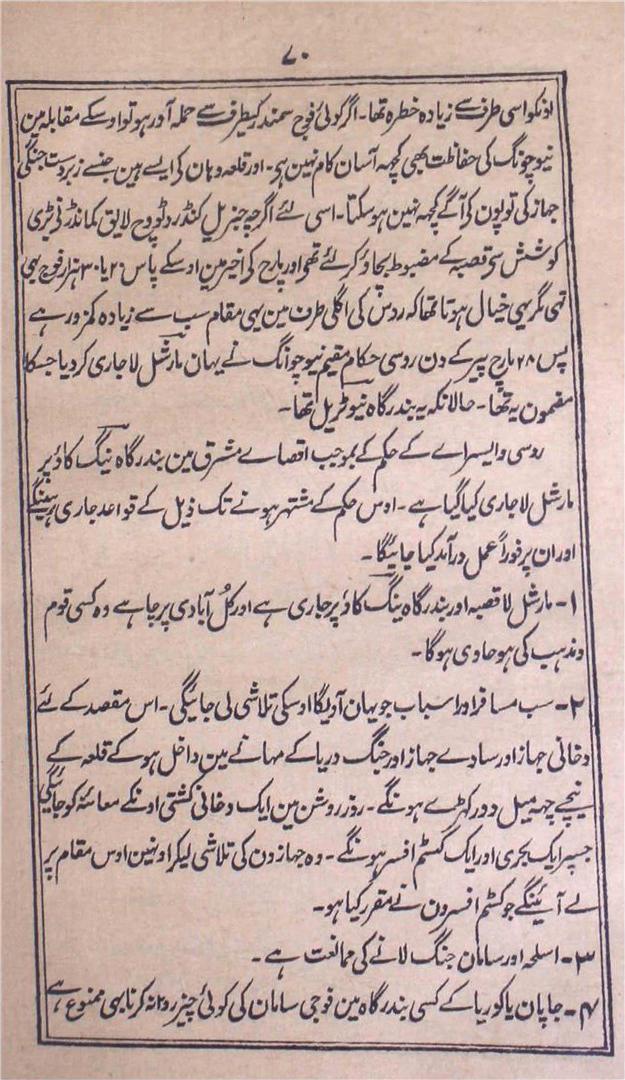 ۷۰
اونکو اسی طرف سے زیادہ خطرہ تھا۔ اگر کوئی فوج سمندر کیطرف سے حملہ آور ہو تو اوسکے مقابلہ مین
نیوچونگ کی حفاظت بھی کچہہ آسان کام نہین ہی۔ اور قلعہ وہان کے ایسے ہین جنسے زبردست جنگی
جہاز کی توپون کے آگے کچہہ نہین ہو سکتا۔ اسی لئے اگرچہ جنرل لایق کمانڈر نے بڑی
کوشش سی قصبہ کے مضبوط بچاؤ کر لئے تھی اور مارچ کی اخیر مین اوسکے پاس ۲۰ یا ۳۰ ہزار فوج بہی
تہی مگر یہی خیال ہوتا تھا کہ روس کی اگلی طرف مین یہی مقام سب سے زیادہ کمزور ہے
پس ۲۸ مارچ پیر کے دن روسی حکام مقیم نیوچوانگ نے یہان مارشل لا جاری کر دیا جسکا
مضمون یہ تھا۔ حالانکہ یہ بندرگاہ نیوٹریل تھا۔
روسی وایسراے کے حکم کے بموجب اقصاے مشرق مین بندرگاہ ینگ کاؤ پر
مارشل لا جاری کیا گیا ہے۔ اوس حکم کے مشتہر ہونے تک ذیل کے قواعد جاری رہینگے
اور ان پر فوراً عمل درآمد کیا جائیگا۔
۱۔ مارشل لا قصبہ اور بندرگاہ ینگ کاؤ پر جاری ہے اور کل آبادی پر چاہے وہ کسی قوم
و مذہب کی ہو حاوی ہوگا۔
۲۔ سب مسافر اور اسباب جو یہان آویگا اوسکی تلاشی لی جائیگی۔ اس مقصد کے لئے
دخانی جہاز اور سادے جہاز اور جنگ دریا کے مہانے مین داخل ہو کے قلعہ کے
نیچے چہہ میل دور کھڑے ہونگے۔ روز روشن مین ایک دخانی کشتی اونکے معائنہ کو جائیگی
جسپر ایک بحری اور ایک کسٹم افسر ہونگے۔ وہ جہازون کی تلاشی لیکر اونہین اوس مقام پر
لے آئینگے جو کسٹم افسرون نے مقرر کیا ہو۔
۳۔ اسلحہ اور سامان جنگ لانے کی ممانعت ہے۔
۴۔ جاپان یا کوریا کے کسی بندرگاہ مین فوجی سامان کی کوئی چیز روانہ کرنا بہی ممنوع ہے